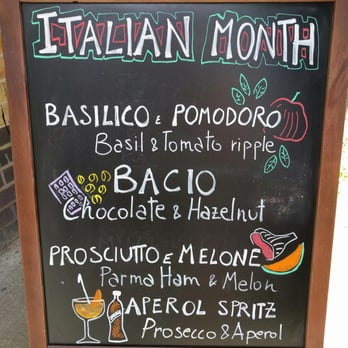 ITALIAN MONTH
BASILICO E POMODORO
Basil & Tomato ripple
BACIO
Chocolate & Hazelnut
PROSCIUTTO E MELONE
Parma Ham & Melon
APEROL SPRITZ
Prosecco & Aperol